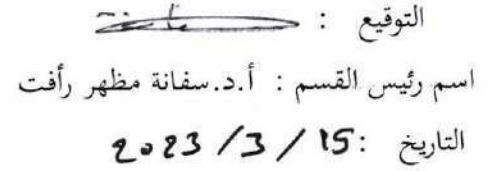 التوقيع :
اسم رئيس القسم : أ.د.سفانة مظهر رأفت
التاريخ : 15 / 3 / 2023